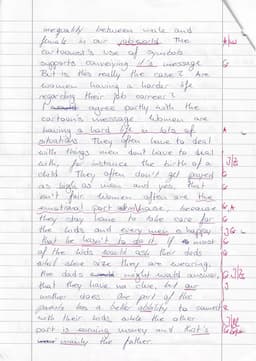 inequality between male and
female is our jobworld. The
cartoonist's use of symbols
supports conveying it's message
But is this really the case? Are
women having a harder life
regarding their job career?
I agree partly with the
cartoon's message. Women are
having a hard life in lots of
situations. They often have to deal
with things men don't have to deal
with, for instance the birth of a
child. They often don't get payed
as high as men and yes, that
isn't fair. Women often are the
emotional part of because
they stay home to take care for
the kids and every men is happy
that he hasn't to do it. If most
of the kids would ask their dads
what shoe size they are wearing,
the dads might would answer,
that they have no clue, but our
mother does. One part of the
parents has a better ability to
with their kids while the other
part is earning money and that's
mainly the father.